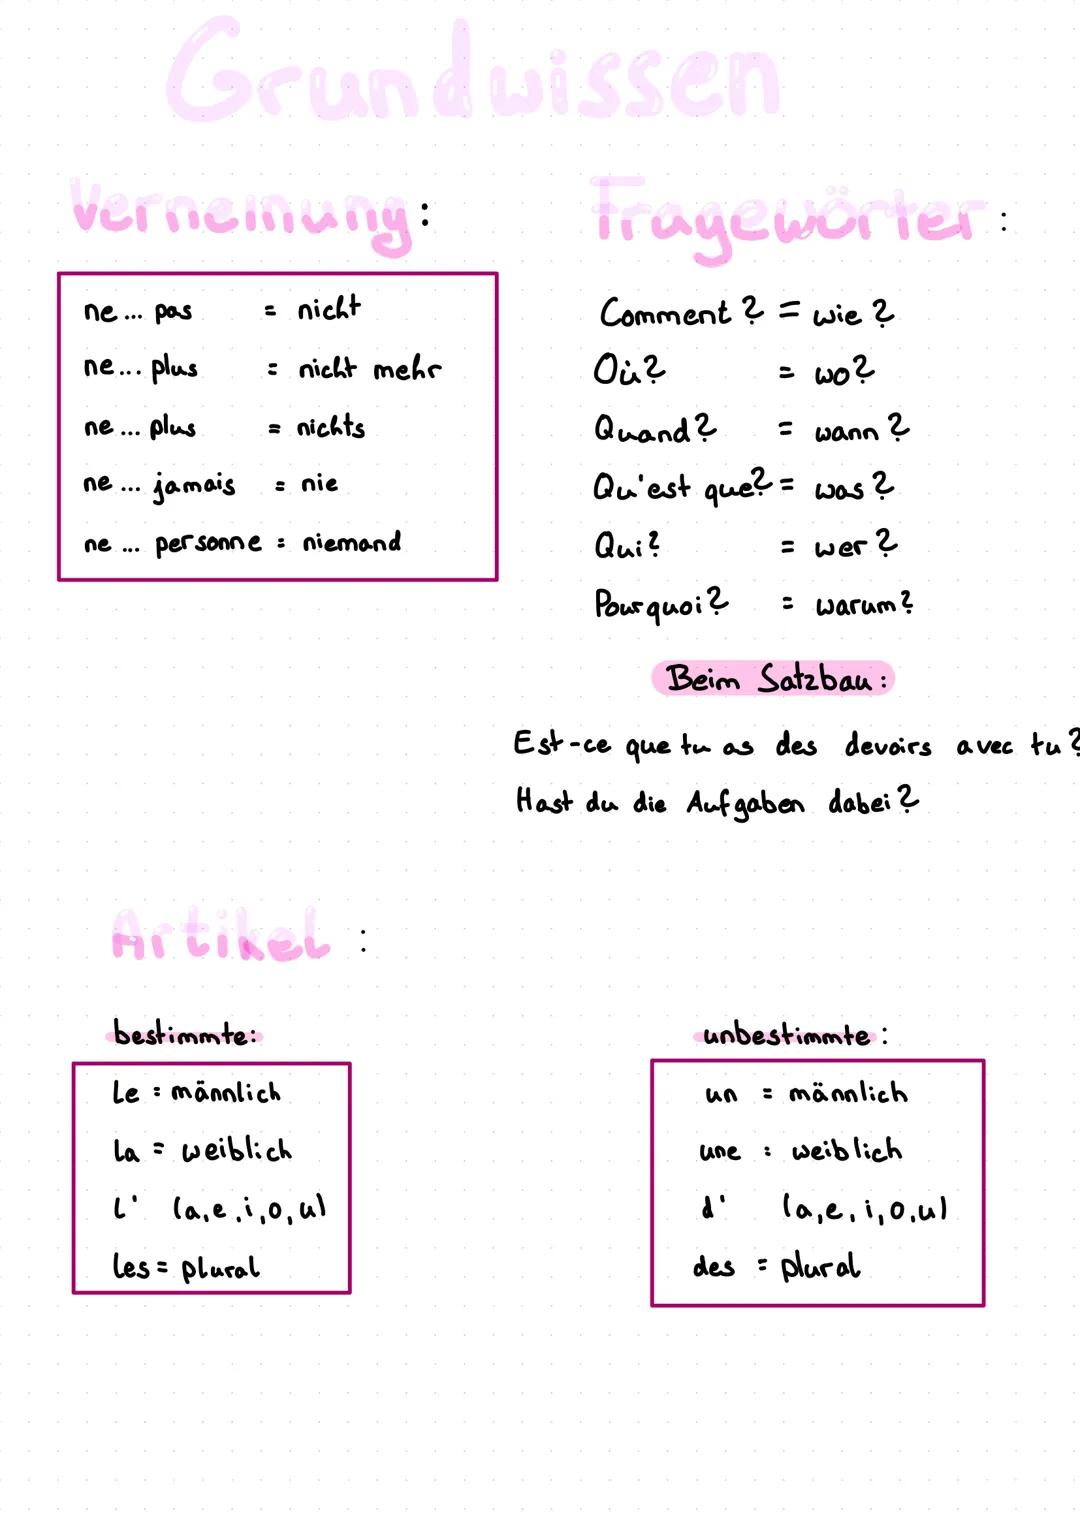 Grundwissen
Verneinung:
ne... pas = nicht
ne... plus = nicht mehr
ne... plus = nichts
ne... jamais = nie
ne... personne = niemand
Fragewörter:
Comment? = wie?
Où? = wo?
Quand? = wann?
Qu'est que? = was?
Qui? = wer?
Pourquoi? = warum?
Beim Satzbau:
Est-ce que tu as des devoirs avec tu?
Hast du die Aufgaben dabei?
Artikel :
bestimmte:
Le = männlich
La = weiblich
L' (a,e,i,o,u)
Les = plural
unbestimmte:
un = männlich
une = weiblich
d' (a,e,i,o,u)
des = plural